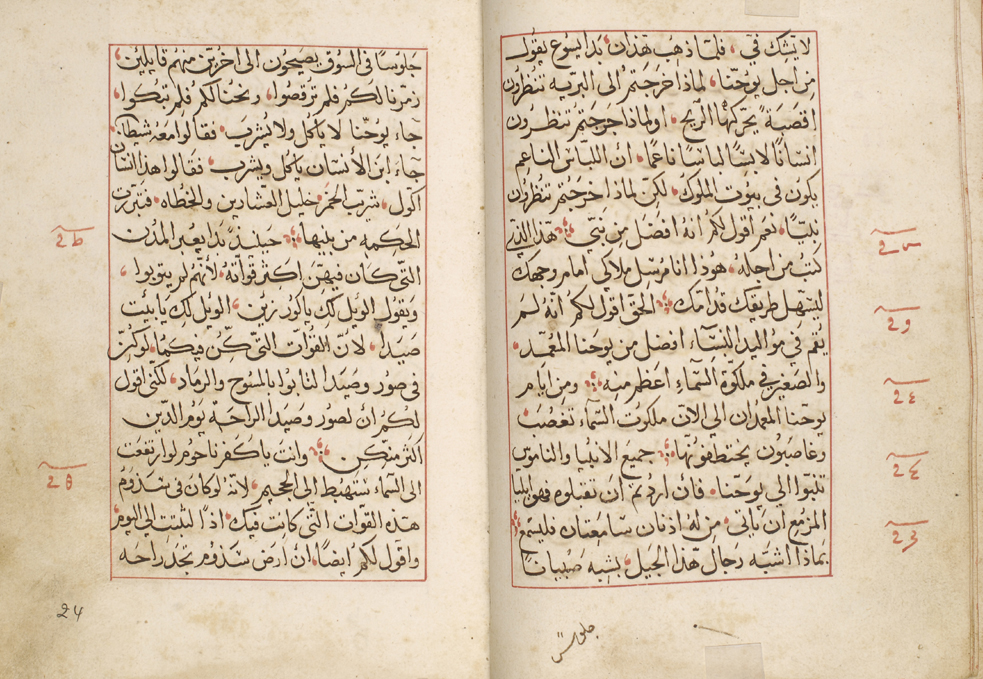 لا يشك فيّ، فلما ذهب هذان بدا يسوع يقول
من اجل يوحنا، لماذا خرجتم الى البريه تنظرون
اقصبة يحركها الريح، او لماذا خرجتم تنظرون
انسانًا لابسًا لباسًا ناعمًا، ان اللباس الناعم
يكون فى بيوت الملوك، لكن لماذا خرجتم تنظرون
نبيًا، نعم اقول لكم انه افضل من نبي هذا الذي
كتب من اجله، هودا انا مرسل ملاكي امام وجهك
ليسهل طريقك قدامك الحق اقول لكم انه لم
يقم في مواليد النسآء افضل من يوحنا المعمد،
والصغير في ملكوة السماءِ اعظم منه ومن ايام
يوحنا المعمدان الي الان ملكوت السمآء تغصب
وغاصبون يختطفونها جميع الانبيا والناموس
تنبوا الي يوحنا، فان اردتم ان تقبلوه فهو ايليا
المزمع ان ياتي، من له اذنان سامعتان فليسمع
بماذا اشبه رجال هذا الجيل، يشبه صبيانًا
جلوسًا
جلوسًا فى السوق يصيحون الى اخرين منهم قايلين،
زمرنا لكم فلم ترقصوا، ونحنا لكم فلم تبكوا،
جاء يوحنا لا ياكل ولا يشرب، فقالوا معه شيطان،
جآء ابن الانسان ياكل ويشرب، فقالوا هذا انسان
اكول، شريب الخمر، خليل العشارين والخطاه، فتبررت
الحكمه من بنيها حينيذ بدا يعير المدن
التي كان فيهن اكثر قواته، لانهم لم يتوبوا،
ويقول الويل لك يا كورزين، الويل لك يا بيت
صيدا، لان القوات التي كن فيكما، لو كن
فى صور وصيدا لتابوا بالمسوح والرماد، لكنى اقول
لكم ان لصور وصيدا الراحة يوم الدين
اكثر منكن وانت يا كفرناحوم لو ارتفعت
الى السماء ستهبط الي الجحيم، لانه لو كان فى سدوم
هذه القوات التي كانت فيك، اذًا لثبتت الي اليوم،
واقول لكم ايضًا، ان ارض سدوم بجد راحه
24